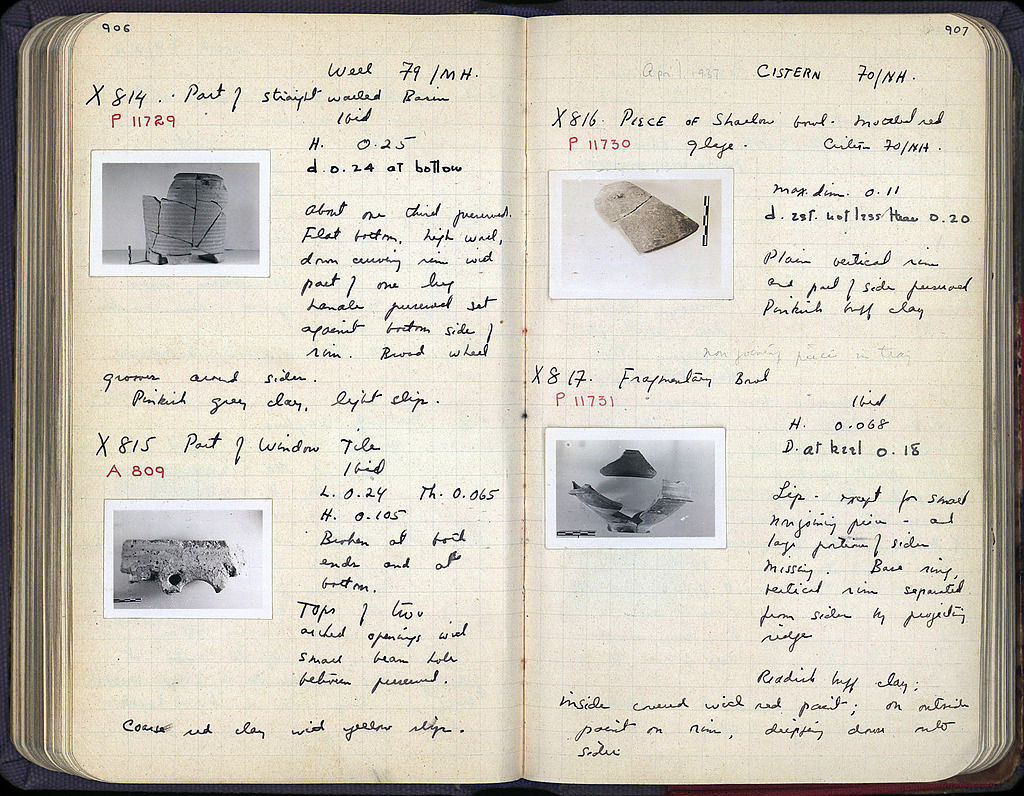 906
Well 79/MH.
X 814 . . Part of straight walled Basin
P 11729
Ibid
H. 0.25
d. 0.24 at bottom
About one third preserved.
Flat bottom, high wall,
down curving rim with
part of one lug
handle preserved set
against bottom side of
rim. Broad wheel
grooves around sides.
Pinkish grey clay, light slip.
X 815 Part of Window Tile
A 809
Ibid
L. 0.24 Th. 0.065
H. 0.105
Broken at both
ends and at
bottom.
Tops of two
arched openings with
small beam hole
between preserved.
Coarse red clay with yellow slip.
907
April 1937 CISTERN 70/NH.
X 816. PIECE OF Shallow bowl. Mottled red
P 11730
glaze. Cistern 70/NH.
max. dim. 0.11
d. est. not less than 0.20
Plain vertical rim
and part of side preserved
Pinkish buff clay
non joining piece in tray
X 817. Fragmentary Bowl
P 11731
Ibid
H. 0.068
D. at keel 0.18
Lip - except for small
nonjoining piece - and
large portion of sides
missing. Base ring,
vertical rim separated
from sides by projecting
ridge
Reddish buff clay;
inside covered with red paint; on outside
paint on rim, dripping down onto
sides